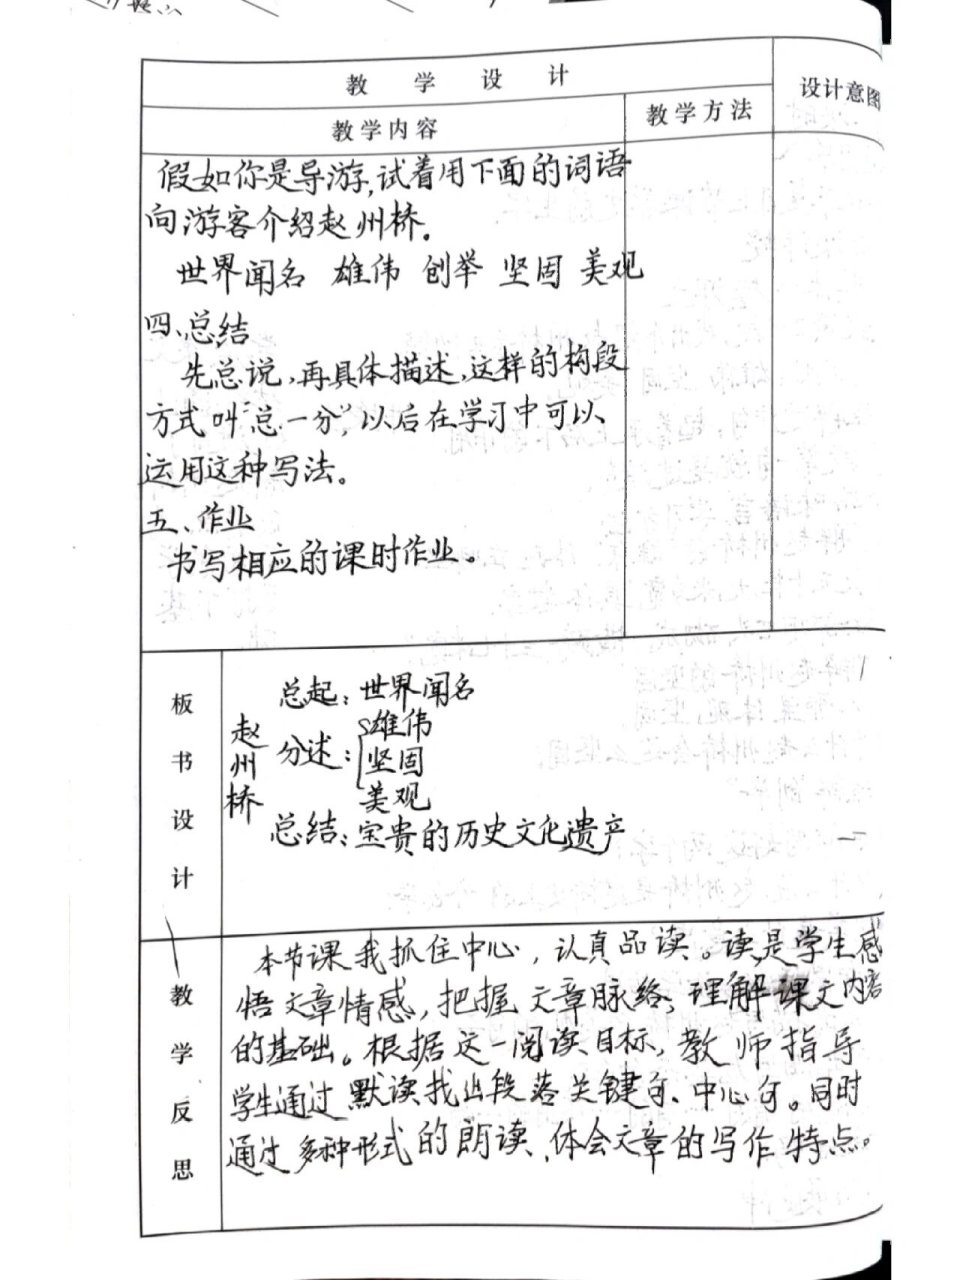 教学设计
设计意图
教学内容
教学方法
假如你是导游,试着用下面的词语
向游客介绍赵州桥。
世界闻名 雄伟 创举 坚固 美观
四、总结
先总说,再具体描述,这样的构段
方式叫“总一分”,以后在学习中可以
运用这种写法。
五、作业
书写相应的课时作业。
板书设计
赵州桥
总起:世界闻名
分述:雄伟
坚固
美观
总结:宝贵的历史文化遗产
教学反思
本节课我抓住中心,认真品读。读是学生感
悟文章情感,把握文章脉络,理解课文内容
的基础。根据这一阅读目标,教师指导
学生通过默读找出段落关键句、中心句。同时
通过多种形式的朗读,体会文章的写作特点。